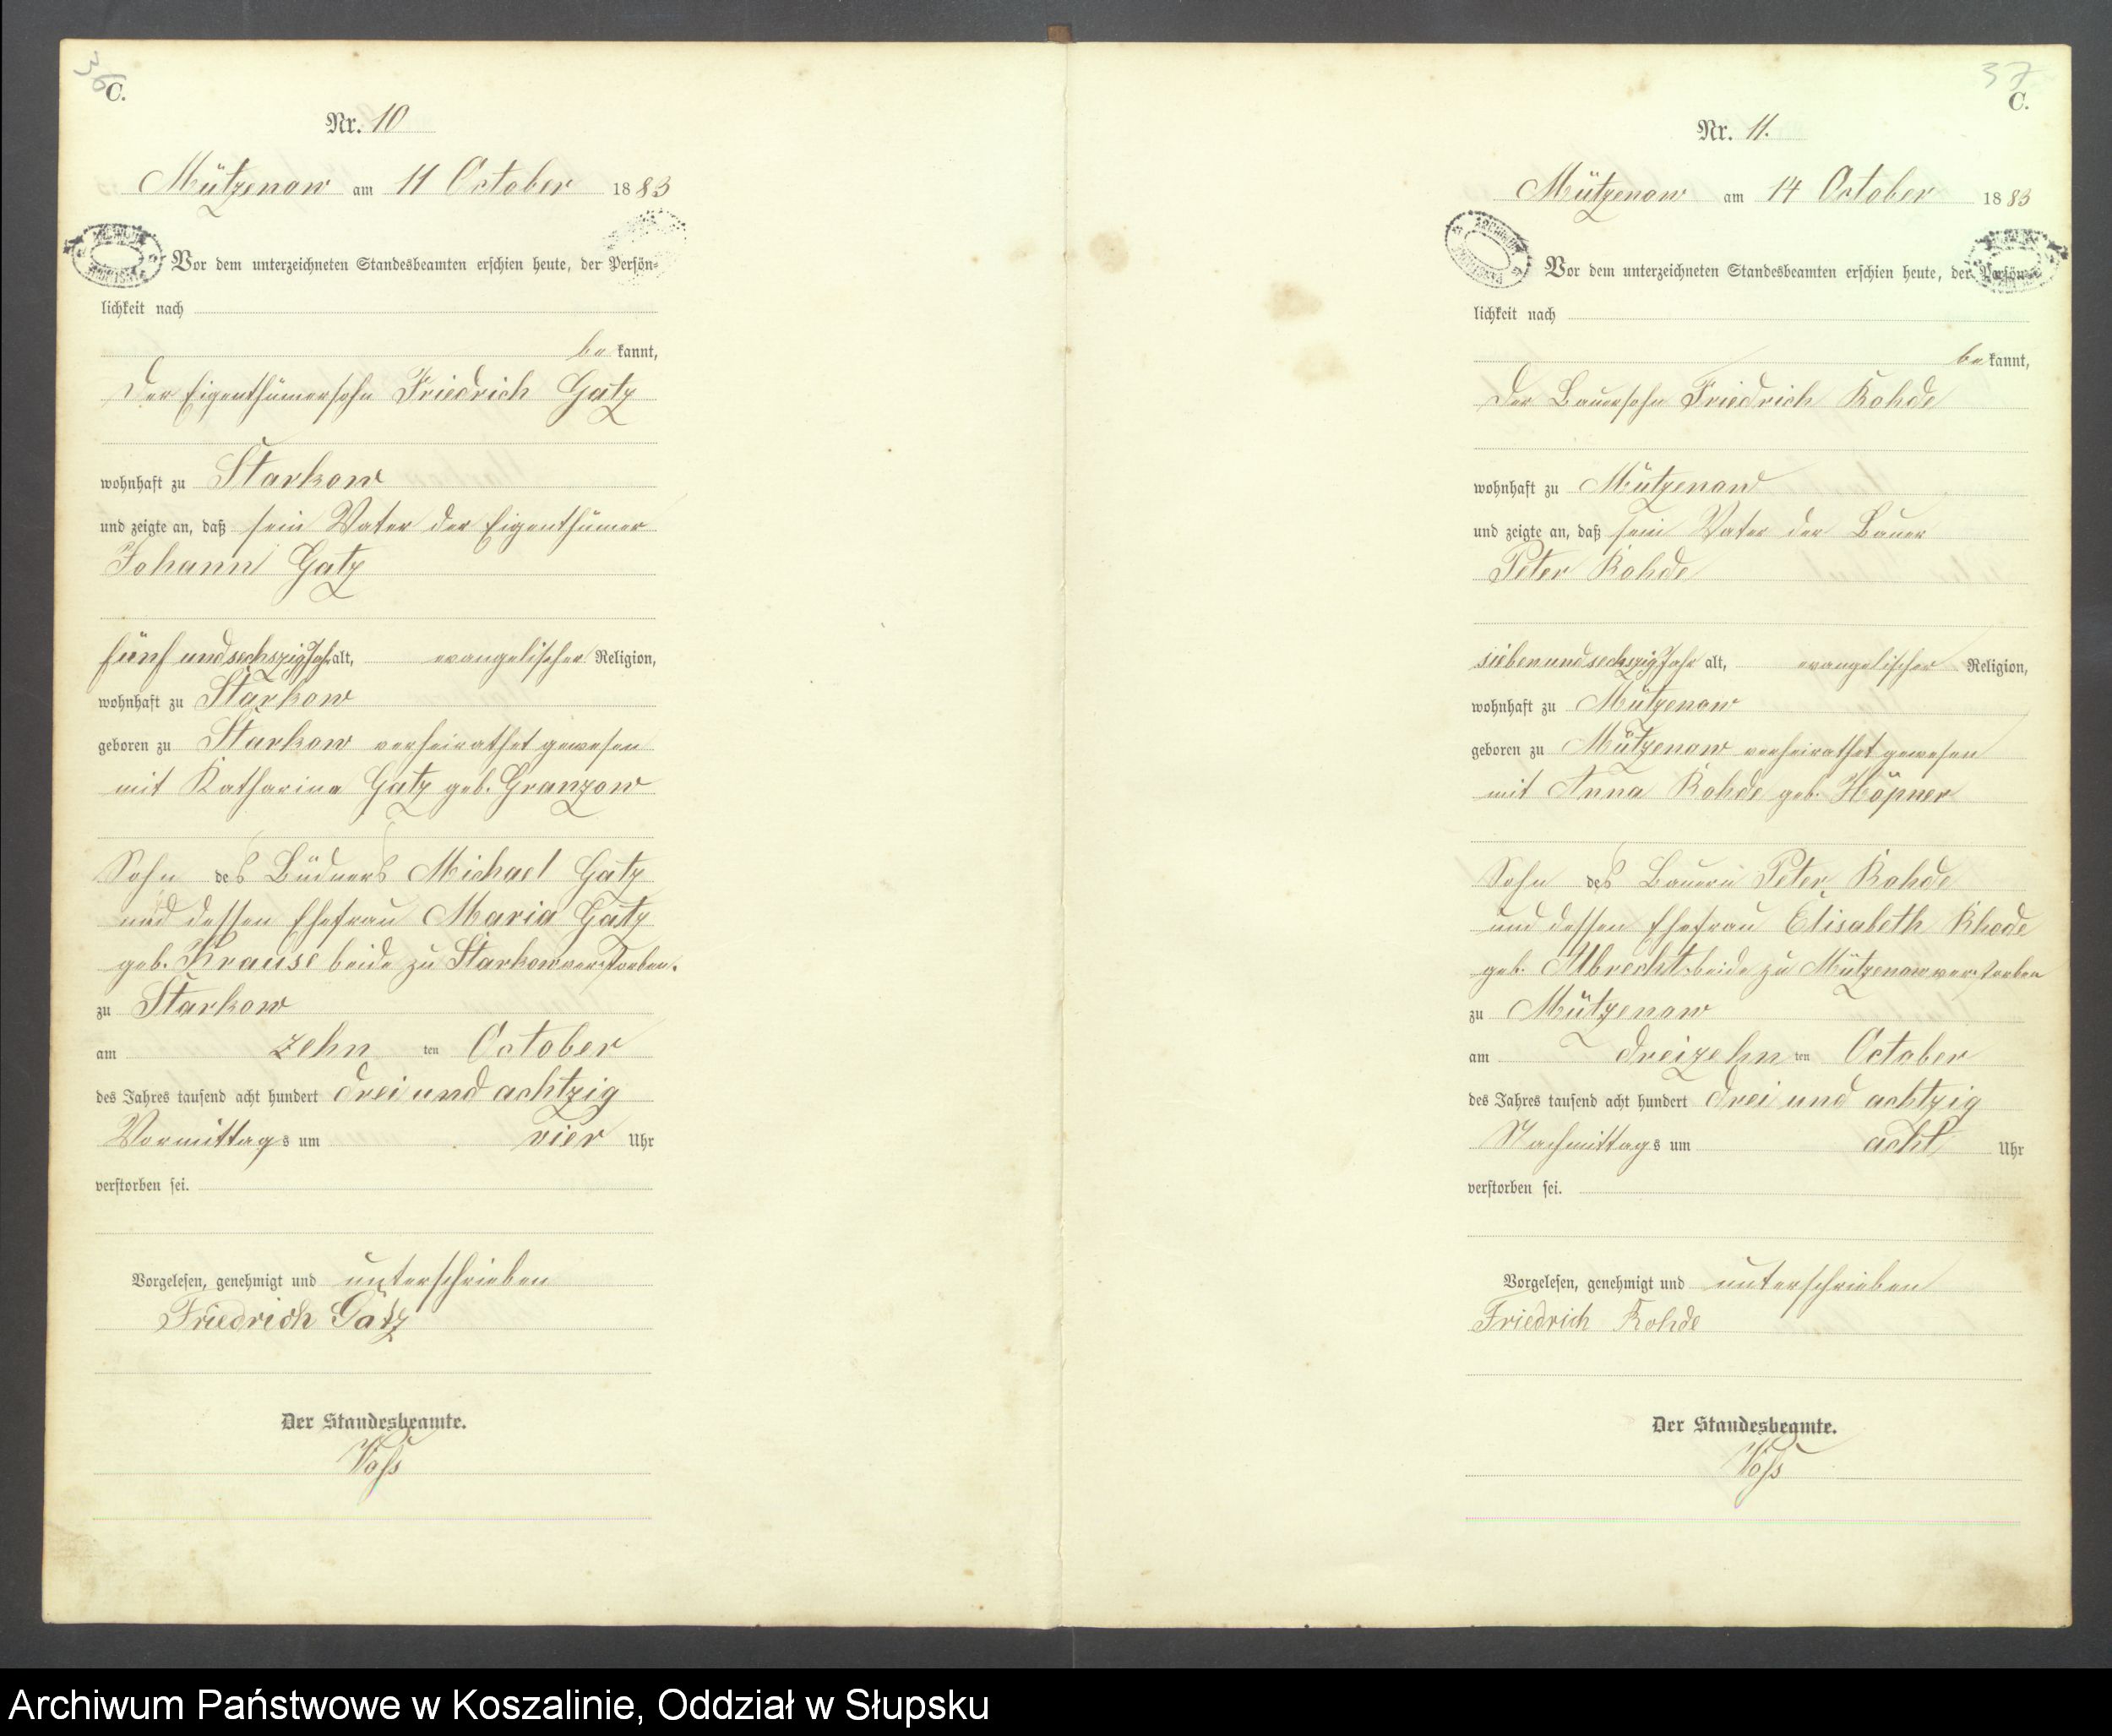 36
C.
Nr. 10
Mützenow am 11 October 1883
Vor dem unterzeichneten Standesbeamten erschien heute, der Persön-
lichkeit nach
be kannt,
Der Eigenthümersohn Friedrich Gatz
wohnhaft zu Starkow
und zeigte an, daß sein Vater der Eigenthümer
Johann Gatz
fünf und sechszig Jahr alt, evangelischer Religion,
wohnhaft zu Starkow
geboren zu Starkow verheirathet gewesen
mit Katharina Gatz geb. Granzow
Sohn des Büdners Michael Gatz
und dessen Ehefrau Maria Gatz
geb. Krause beide zu Starkow verstorben.
zu Starkow
am zehn ten October
des Jahres tausend acht hundert drei und achtzig
Vormittags um vier Uhr
verstorben sei.
Vorgelesen, genehmigt und unterschrieben
Friedrich Gatz
Der Standesbeamte.
Voß
37
C.
Nr. 11.
Mützenow am 14 October 1883
Vor dem unterzeichneten Standesbeamten erschien heute, der Persön-
lichkeit nach
be kannt,
Der Bauersohn Friedrich Rohde
wohnhaft zu Mützenow
und zeigte an, daß sein Vater der Bauer
Peter Rohde
sieben und sechszig Jahr alt, evangelischer Religion,
wohnhaft zu Mützenow
geboren zu Mützenow verheirathet gewesen
mit Anna Rohde geb. Höpner
Sohn des Bauern Peter Rohde
und dessen Ehefrau Elisabeth Rhode
geb. Albrecht beide zu Mützenow verstorben
zu Mützenow
am dreizehn ten October
des Jahres tausend acht hundert drei und achtzig
Nachmittags um acht Uhr
verstorben sei.
Vorgelesen, genehmigt und unterschrieben
Friedrich Rohde
Der Standesbeamte.
Voß
Archiwum Państwowe w Koszalinie, Oddział w Słupsku